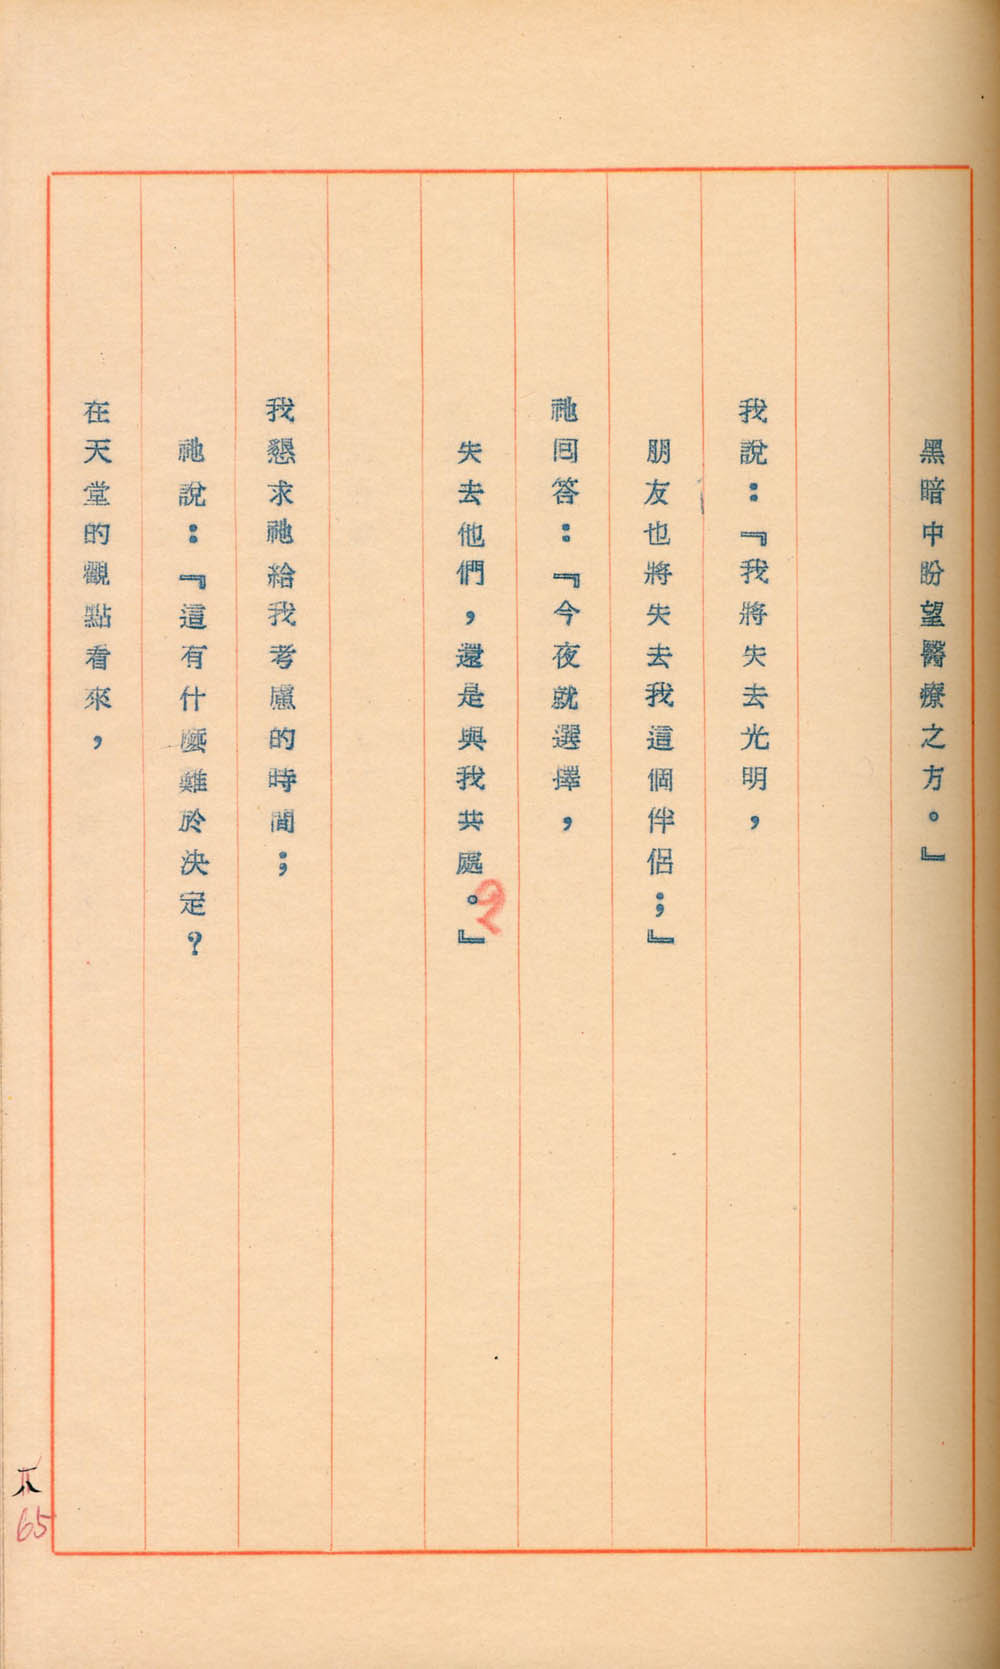 黑暗中盼望醫療之方。』
我說：『我將失去光明，
朋友也將失去我這個伴侶；』
祂回答：『今夜就選擇，
失去他們，還是與我共處。』
我懇求祂給我考慮的時間；
祂說：『這有什麼難於決定？
在天堂的觀點看來，
65